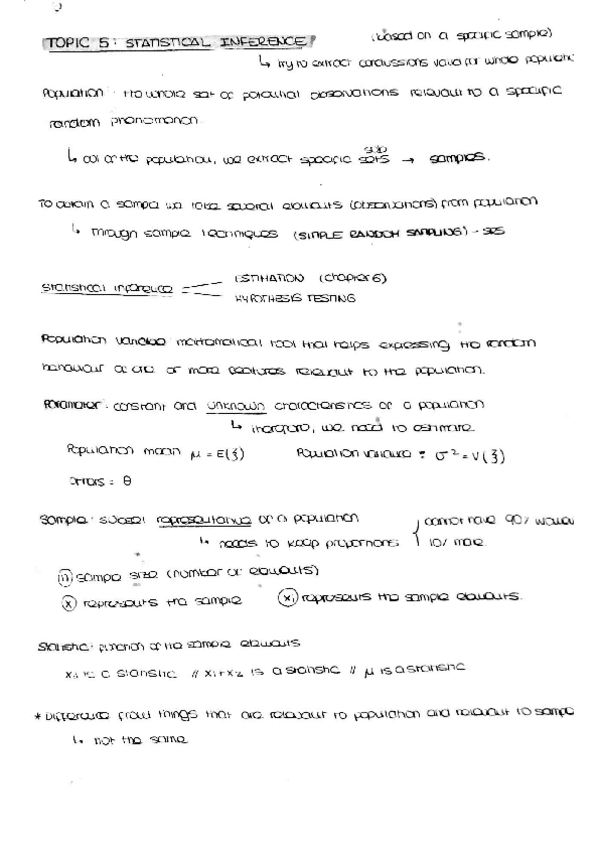 TOPIC 5: STATISTICAL INFERENCE! (based on a specific sample)
↳ try to extract conclussions valid for whole populatic
Population: the whole set of potential observations relevant to a specific
random phenomenon.
↳ out of the population, we extract specific sub sets → samples.
To obtain a sample we take several elements (observations) from population
↳ Through sample techniques (SIMPLE RANDOM SAMPLING) - SRS
Statistical inference = ESTIMATION (chapter 6)
HYPOTHESIS TESTING
Population variable mathematical tool that helps expressing the random
behaviour of one or more features relevant to the population.
Parameter: constant and unknown characteristics of a population
↳ therefore, we need to estimate
Population mean μ = E(ξ) Population variance = σ² = V(ξ)
others = θ
Sample: subset representative of a population { cannot have 90% women
↳ needs to keep proportions 10% male.
(n) sample size (number of elements)
(x) represents the sample (xi) represents the sample elements.
Statistic: function of the sample elements
x₁ is a statistic // x₁+x₂ is a statistic // μ is a statistic
* Difference from things that are relevant to population and relevant to sample
↳ not the same